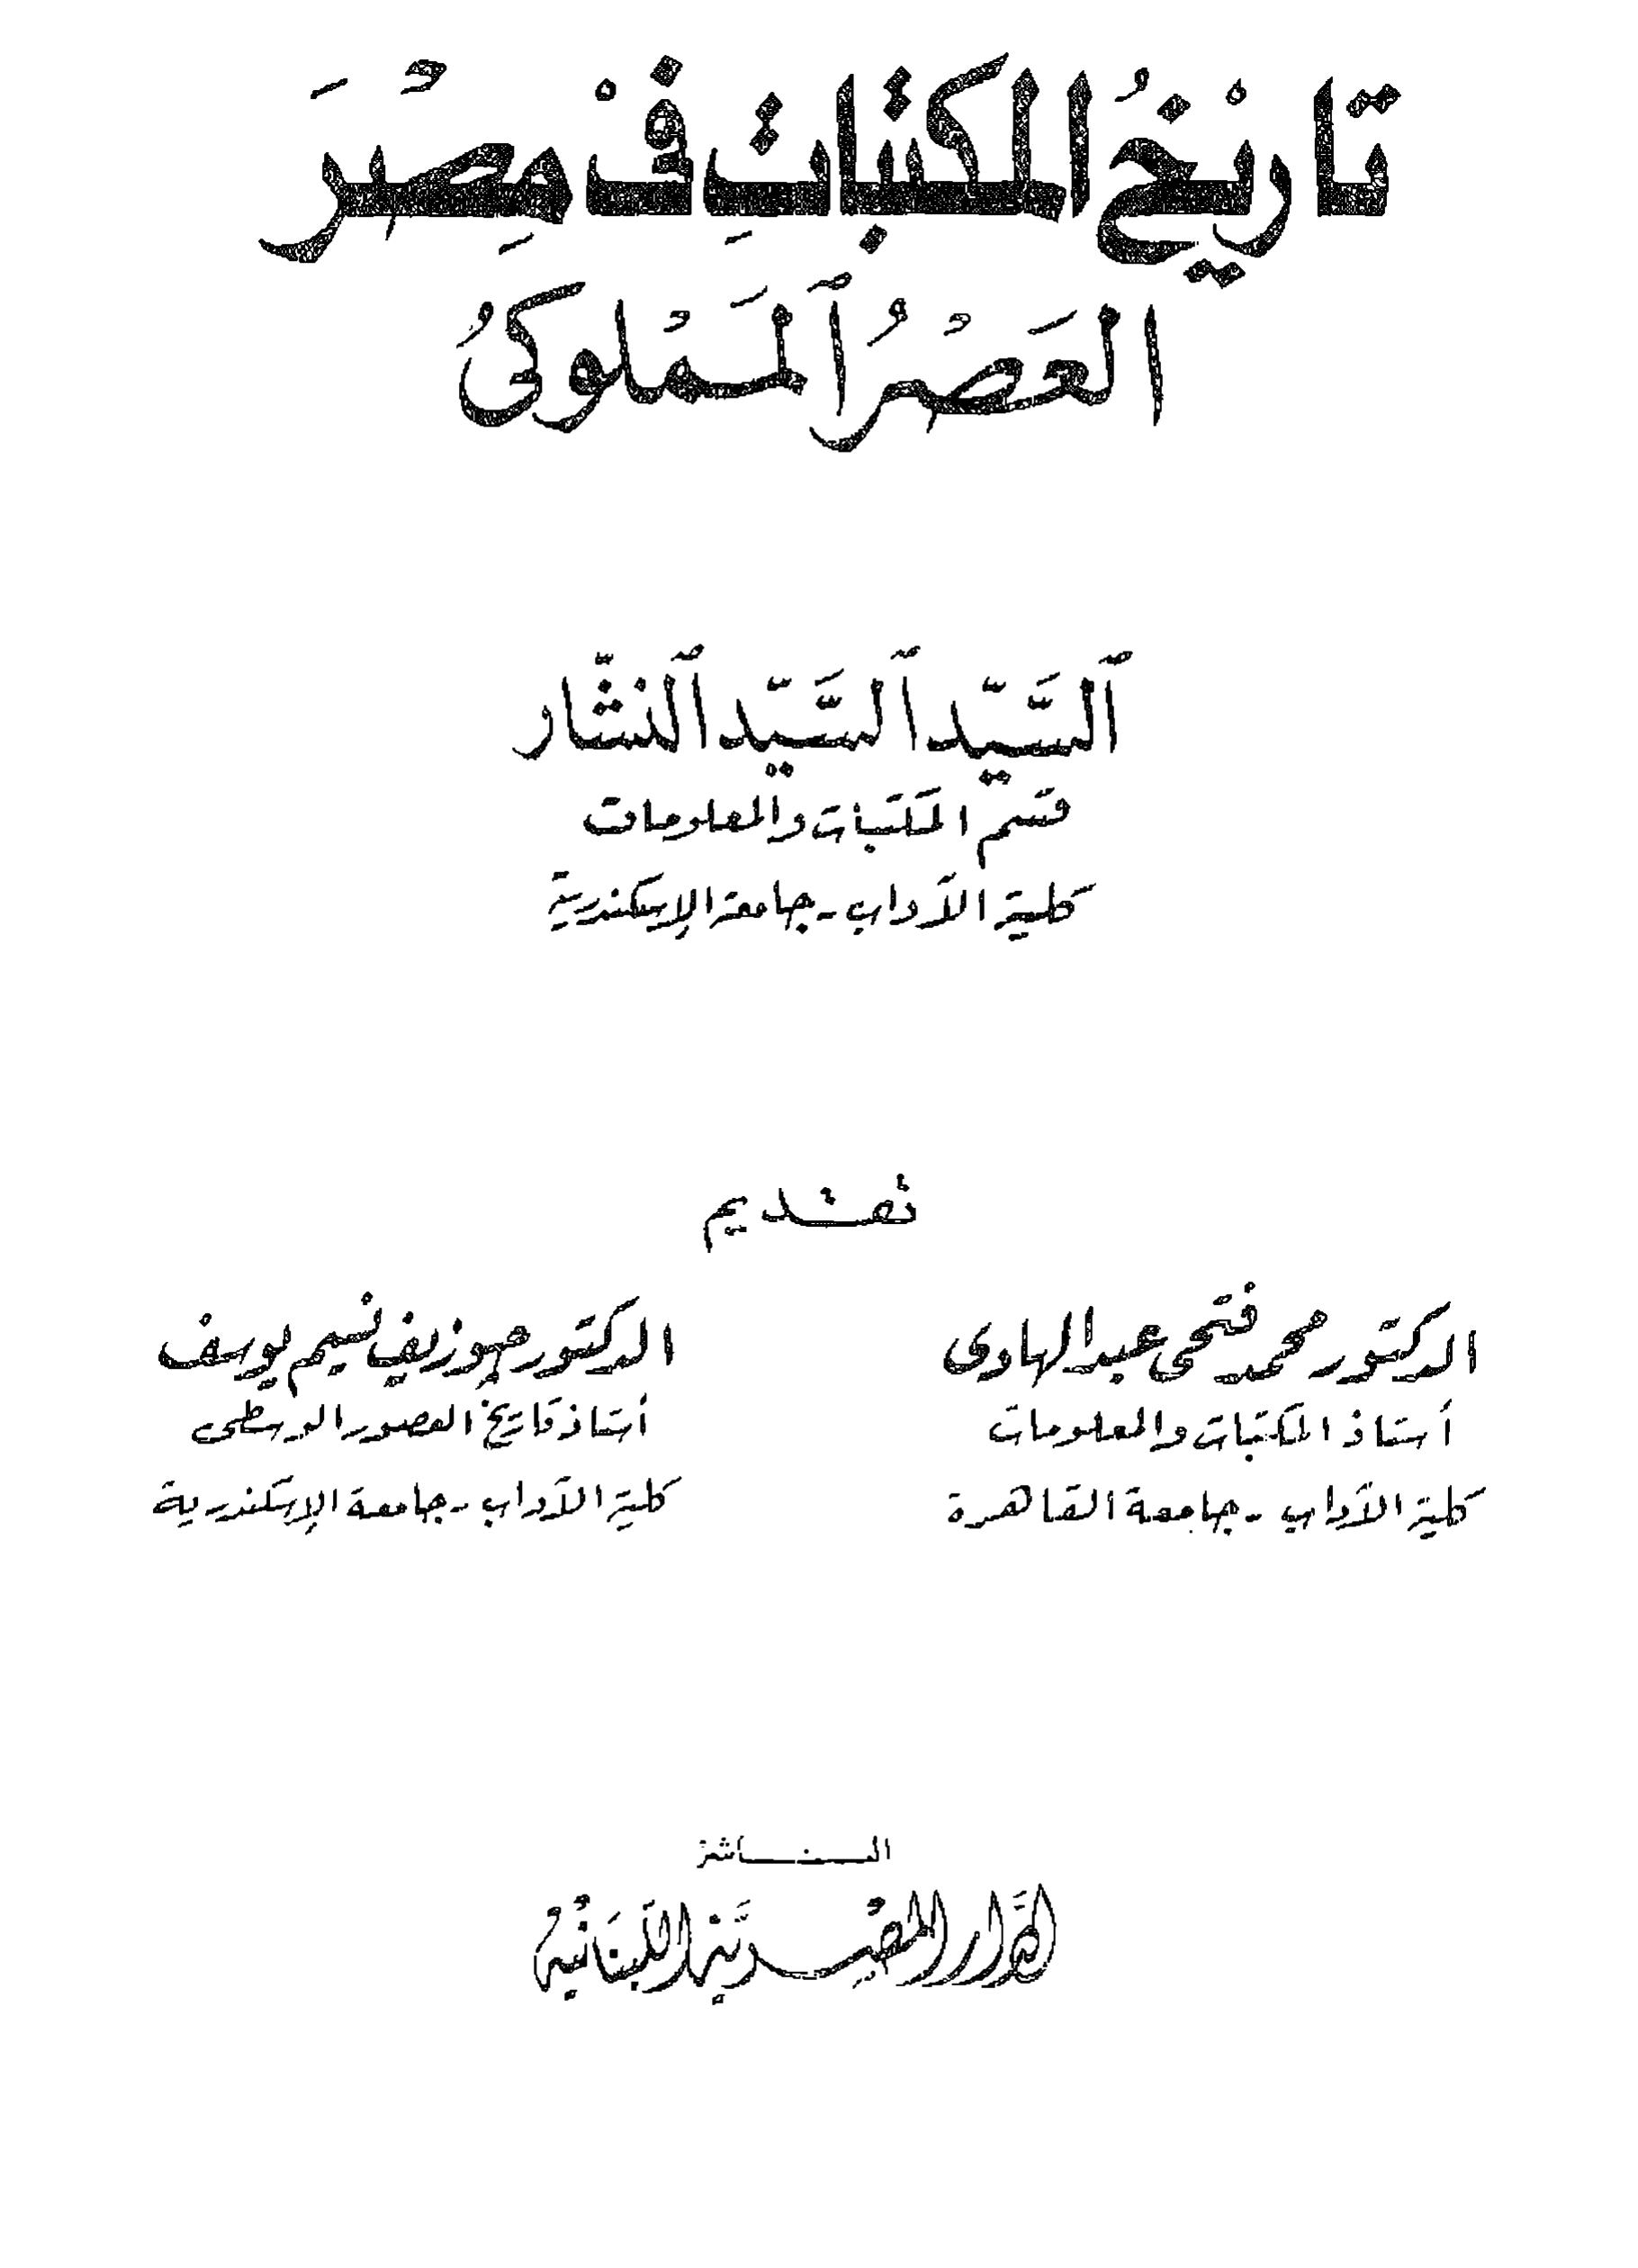 تاريْخُ المكتباتِ فْ مِصْرَ
العَصْرُ ٱلمَمْلوكىُ
ٱلسَّيّد ٱلسَّيّد ٱلنشّار
قسم المكتبات والمعلومات
كلية الآداب - جامعة الإسكندرية
تقديم
الدكتور محمد فتحى عبد الهادى
أستاذ المكتبات والمعلومات
كلية الآداب - جامعة القاهرة
الدكتور جوزيف نسيم يوسف
أستاذ تاريخ العصور الوسطى
كلية الآداب - جامعة الإسكندرية
الناشر
الدَّار المصْريَّة اللبنَانيُة